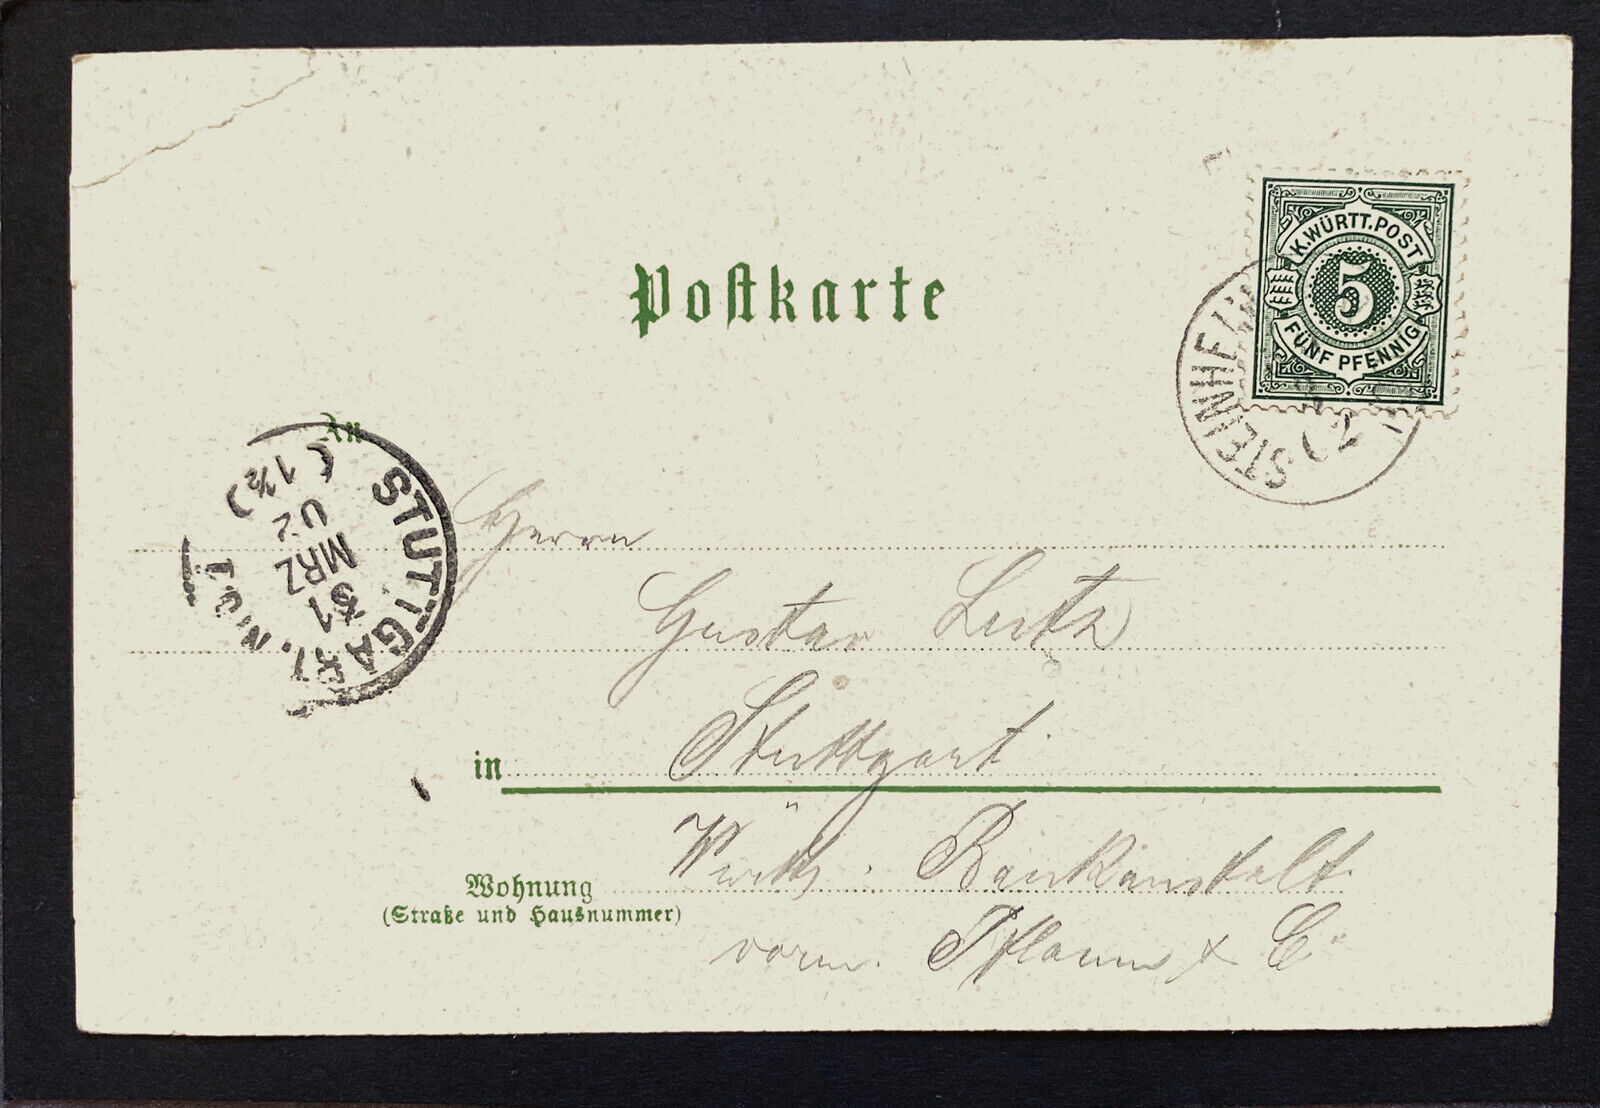 Postkarte
K. WÜRTT. POST
5
FÜNF PFENNIG
STEINHEIM
An
STUTTGART. N:O.I
31
MRZ
( 1½ )
Herrn
Gustav Lutz
in Stuttgart
Württ. Bankanstalt
Wohnung
(Straße und Hausnummer)
vorm. Pflaum & Co